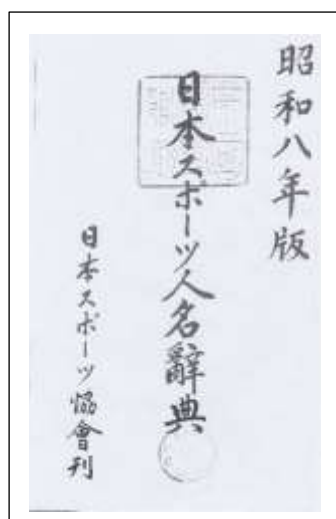 昭和八年版
日本スポーツ人名辭典
日本スポーツ協會刊